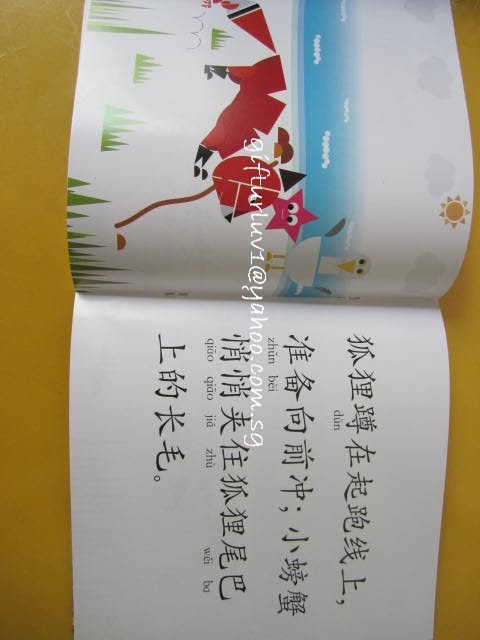 狐狸蹲在起跑线上，
dūn
准备向前冲；小螃蟹
zhǔn bèi
悄悄夹住狐狸尾巴
qiāo qiāo jiā zhù wěi ba
上的长毛。
gifturluv1@yahoo.com.sg